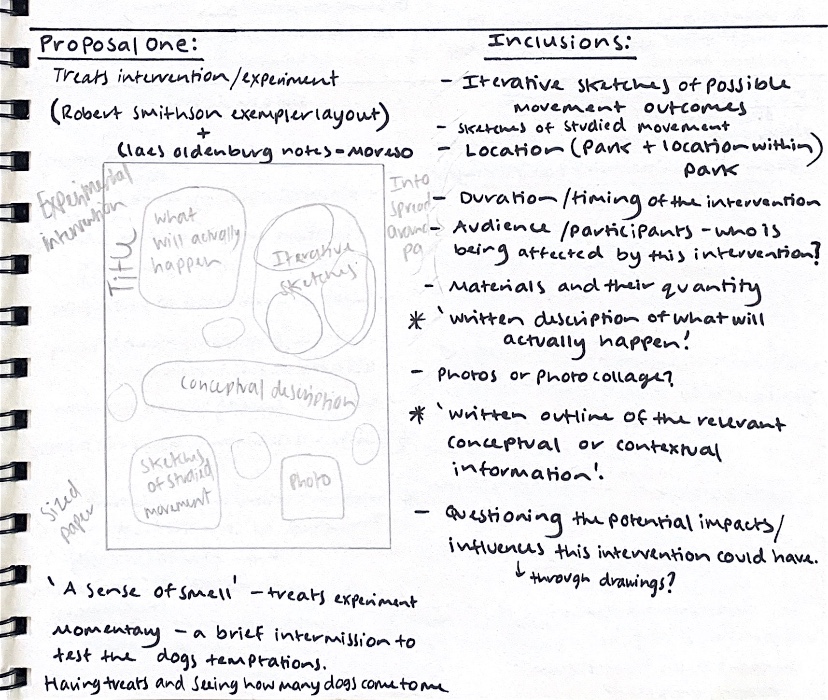 Proposal One:
Treats intervention/experiment
(Robert Smithson exempler layout)
+
Claes oldenburg notes = moreso
Experimental
intervention
Title
what
will actually
happen
Iterative
sketches
Into
spread
around
pg
conceptual description
Sketches
of studied
movement
Photo
Sized
paper
'A sense of smell' - treats experiment
Momentary - a brief intermission to
test the dogs temptations.
Having treats and seeing how many dogs come to me
Inclusions:
- Iterative sketches of possible
movement outcomes
- sketches of studied movement
- Location (Park + location within)
park
- Duration/timing of the intervention
- Audience/participants - who is
being affected by this intervention?
- Materials and their quantity
* 'written description of what will
actually happen!
- Photos or photo collage?
* 'written outline of the relevant
conceptual or contextual
information'.
- Questioning the potential impacts/
influences this intervention could have.
↳ through drawings?